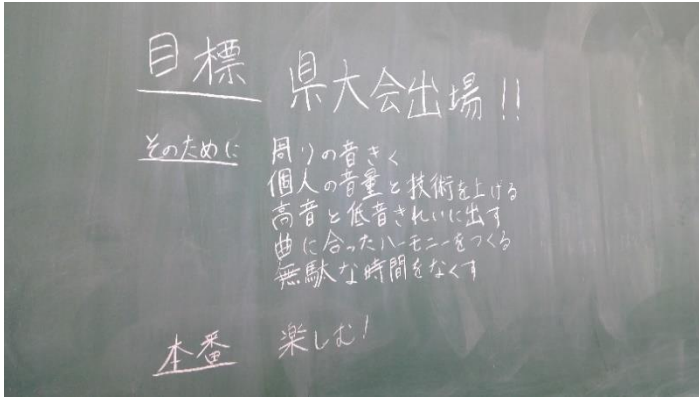 目標 県大会出場!!
そのために 周りの音きく
個人の音量と技術を上げる
高音と低音きれいに出す
曲に合ったハーモニーをつくる
無駄な時間をなくす
本番 楽しむ!